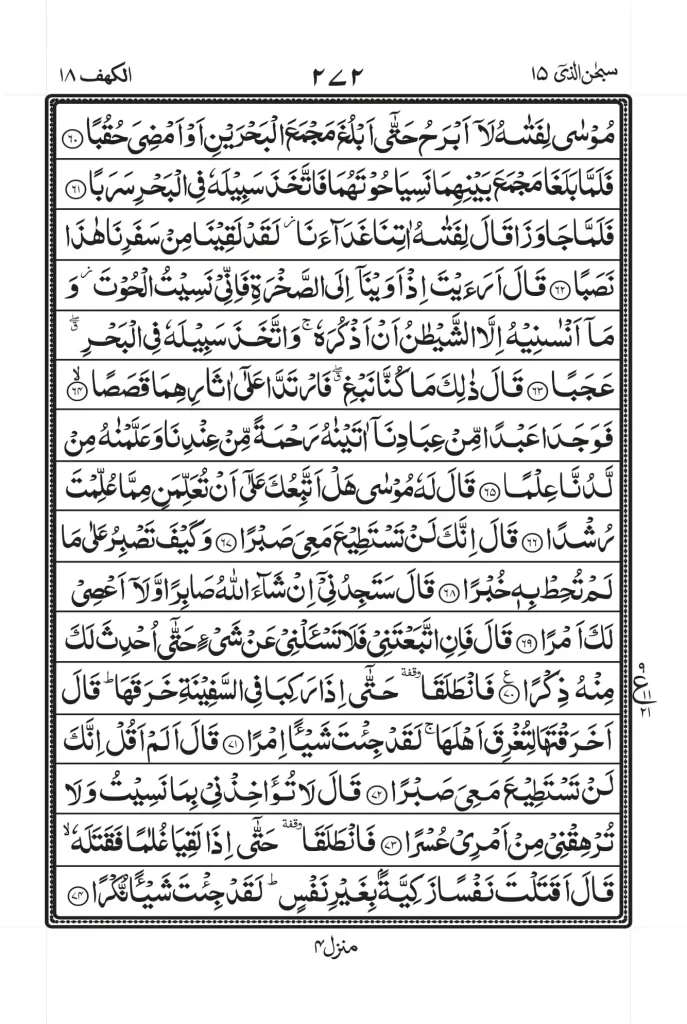 سبحٰن الذیٓ ١٥
٢٧٢
الكهف ١٨
مُوْسٰى لِفَتٰىهُ لَاۤ اَبْرَحُ حَتّٰۤى اَبْلُغَ مَجْمَعَ الْبَحْرَيْنِ اَوْ اَمْضِىَ حُقُبًا ۝٦٠
فَلَمَّا بَلَغَا مَجْمَعَ بَيْنِهِمَا نَسِيَا حُوْتَهُمَا فَاتَّخَذَ سَبِيْلَهٗ فِى الْبَحْرِ سَرَبًا ۝٦١
فَلَمَّا جَاوَزَا قَالَ لِفَتٰىهُ اٰتِنَا غَدَآءَنَا ز لَقَدْ لَقِيْنَا مِنْ سَفَرِنَا هٰذَا
نَصَبًا ۝٦٢ قَالَ اَرَءَيْتَ اِذْ اَوَيْنَاۤ اِلَى الصَّخْرَةِ فَاِنِّىْ نَسِيْتُ الْحُوْتَ ز وَ
مَاۤ اَنْسٰىنِيْهُ اِلَّا الشَّيْطٰنُ اَنْ اَذْكُرَهٗ ۚ وَاتَّخَذَ سَبِيْلَهٗ فِى الْبَحْرِ ۖق
عَجَبًا ۝٦٣ قَالَ ذٰلِكَ مَا كُنَّا نَبْغِ ۖق فَارْتَدَّا عَلٰۤى اٰثَارِهِمَا قَصَصًا ۙ۝٦٤
فَوَجَدَا عَبْدًا مِّنْ عِبَادِنَاۤ اٰتَيْنٰهُ رَحْمَةً مِّنْ عِنْدِنَا وَعَلَّمْنٰهُ مِنْ
لَّدُنَّا عِلْمًا ۝٦٥ قَالَ لَهٗ مُوْسٰى هَلْ اَتَّبِعُكَ عَلٰۤى اَنْ تُعَلِّمَنِ مِمَّا عُلِّمْتَ
رُشْدًا ۝٦٦ قَالَ اِنَّكَ لَنْ تَسْتَطِيْعَ مَعِىَ صَبْرًا ۝٦٧ وَكَيْفَ تَصْبِرُ عَلٰى مَا
لَمْ تُحِطْ بِهٖ خُبْرًا ۝٦٨ قَالَ سَتَجِدُنِىْۤ اِنْ شَآءَ اللّٰهُ صَابِرًا وَّلَاۤ اَعْصِىْ
لَكَ اَمْرًا ۝٦٩ قَالَ فَاِنِ اتَّبَعْتَنِىْ فَلَا تَسْـَٔلْنِىْ عَنْ شَىْءٍ حَتّٰۤى اُحْدِثَ لَكَ
مِنْهُ ذِكْرًا ۝٧٠ ع فَانْطَلَقَا وقفة حَتّٰۤى اِذَا رَكِبَا فِى السَّفِيْنَةِ خَرَقَهَا ؕ قَالَ
٩ ع ١١ ٢١
اَخَرَقْتَهَا لِتُغْرِقَ اَهْلَهَا ۚ لَقَدْ جِئْتَ شَيْـًٔا اِمْرًا ۝٧١ قَالَ اَلَمْ اَقُلْ اِنَّكَ
لَنْ تَسْتَطِيْعَ مَعِىَ صَبْرًا ۝٧٢ قَالَ لَا تُؤَاخِذْنِىْ بِمَا نَسِيْتُ وَلَا
تُرْهِقْنِىْ مِنْ اَمْرِىْ عُسْرًا ۝٧٣ فَانْطَلَقَا وقفة حَتّٰۤى اِذَا لَقِيَا غُلٰمًا فَقَتَلَهٗ ۙ
قَالَ اَقَتَلْتَ نَفْسًا زَكِيَّةًۢ بِغَيْرِ نَفْسٍ ؕ لَقَدْ جِئْتَ شَيْـًٔا نُّكْرًا ۝٧٤
منزل ٤